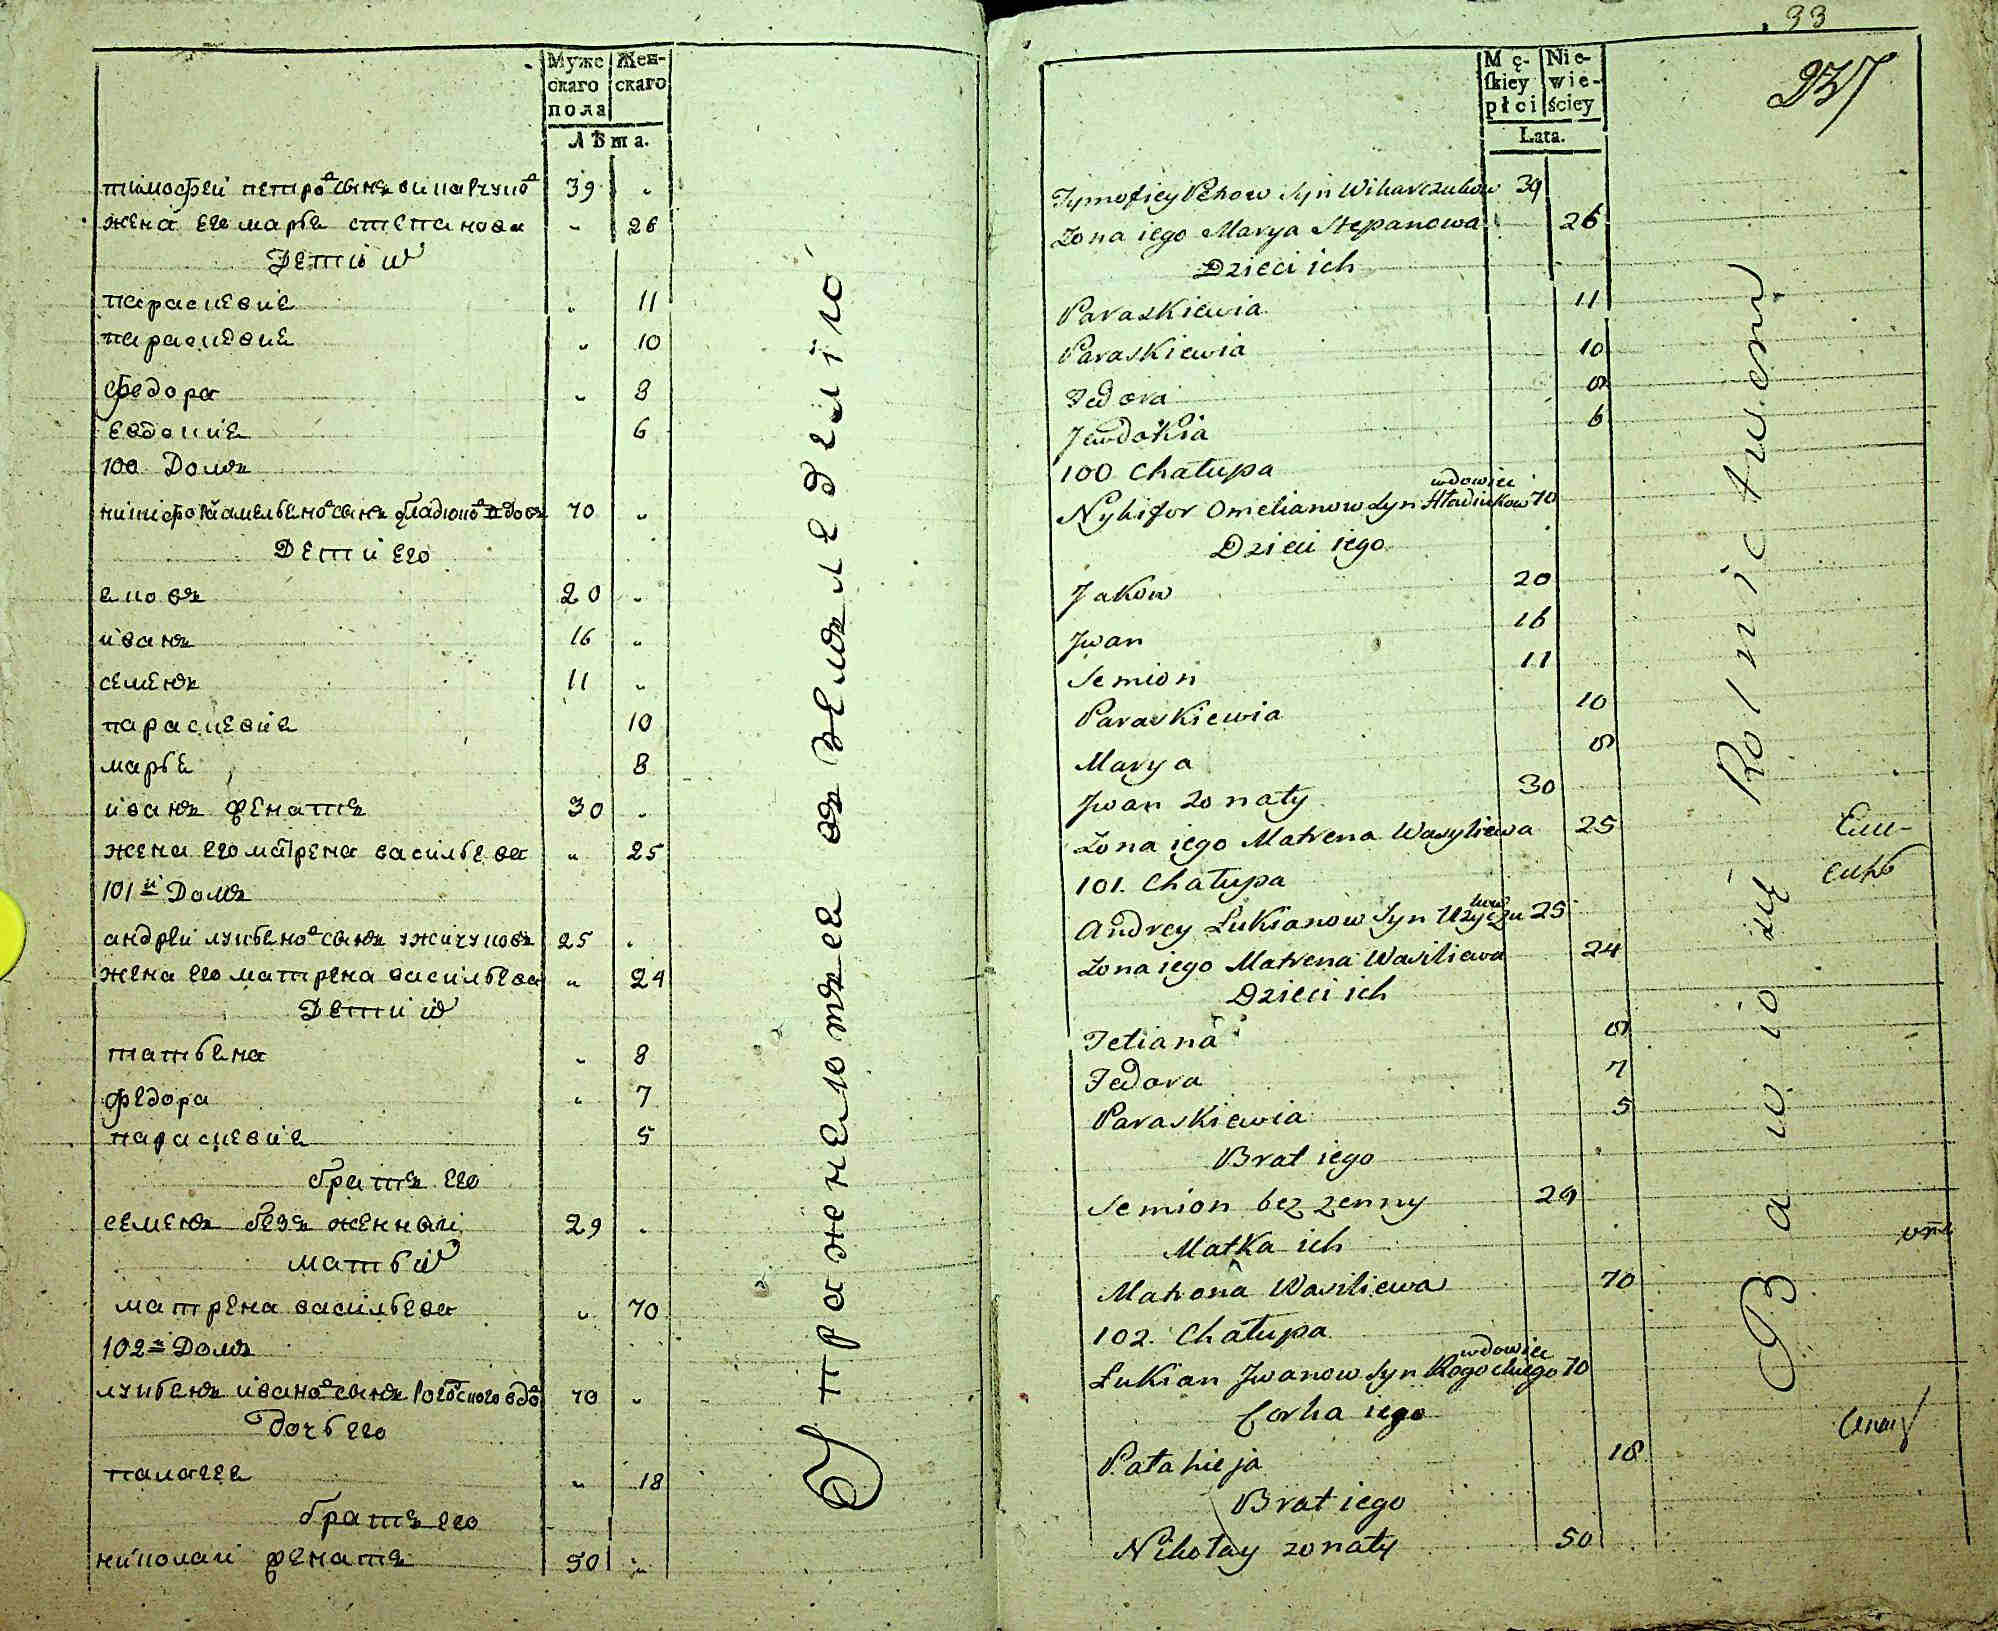 Муже скаго пола
Жен- скаго
Лѣта.
тимофей петровъ сынъ викарчуковъ 39 "
жена его марья степанова " 26
Дети их
параскевия " 11
параскевия " 10
федора " 8
евдокия 6
100 Домъ
никифор амельяновъ сынъ гладюковъ вдовъ 70 "
Дети его
яковъ 20 "
иванъ 16 "
семенъ 11 "
параскевия 10
марья 8
иванъ женатъ 30 "
жена его матрена васильева " 25
101й Домъ
андрей лукьяновъ сынъ ужичуковъ 25 "
жена его матрена васильева " 24
Дети их
татьяна " 8
федора " 7
параскевия 5
братъ его
семенъ безъ женнай 29 "
мать их
матрена васильева " 70
102й Домъ
лукьянъ ивановъ сынъ рогоского вдов 70 "
дочь его
палагея " 18
братъ его
николай женатъ 50 "
Упраженяютъея въ земледелiю
33
237
Mę- skiey płci
Nie- wie- ściey
Lata.
Tymofiey Petrow Syn Wikarczukow 39
Zona iego Marya Stepanowa 26
Dzieci ich
Paraskiewia 11
Paraskiewia 10
Fedora 8
Jewdokia 6
100 Chałupa
wdowiec
Nykifor Omelianow Syn Hładiukow 70
Dzieci iego
Jakow 20
Jwan 16
Semion 11
Paraskiewia 10
Marya 8
Jwan zonaty 30
Zona iego Matrena Wasyliewa 25
101. Chałupa
Andrey Łukianow Syn Użyczukow 25
Zona iego Matrena Wasiliewa 24
Dzieci ich
Tetiana 8
Fedora 7
Paraskiewia 5
Brat iego
Semion bez zenny 29
Matka ich
Matrona Wasiliewa 70
102. Chałupa
wdowiec
Łukian Jwanow Syn Rogockiego 70
Corka iego
Patahieja 18
Brat iego
Nikołay zonaty 50
Bawią się Rolnictwem